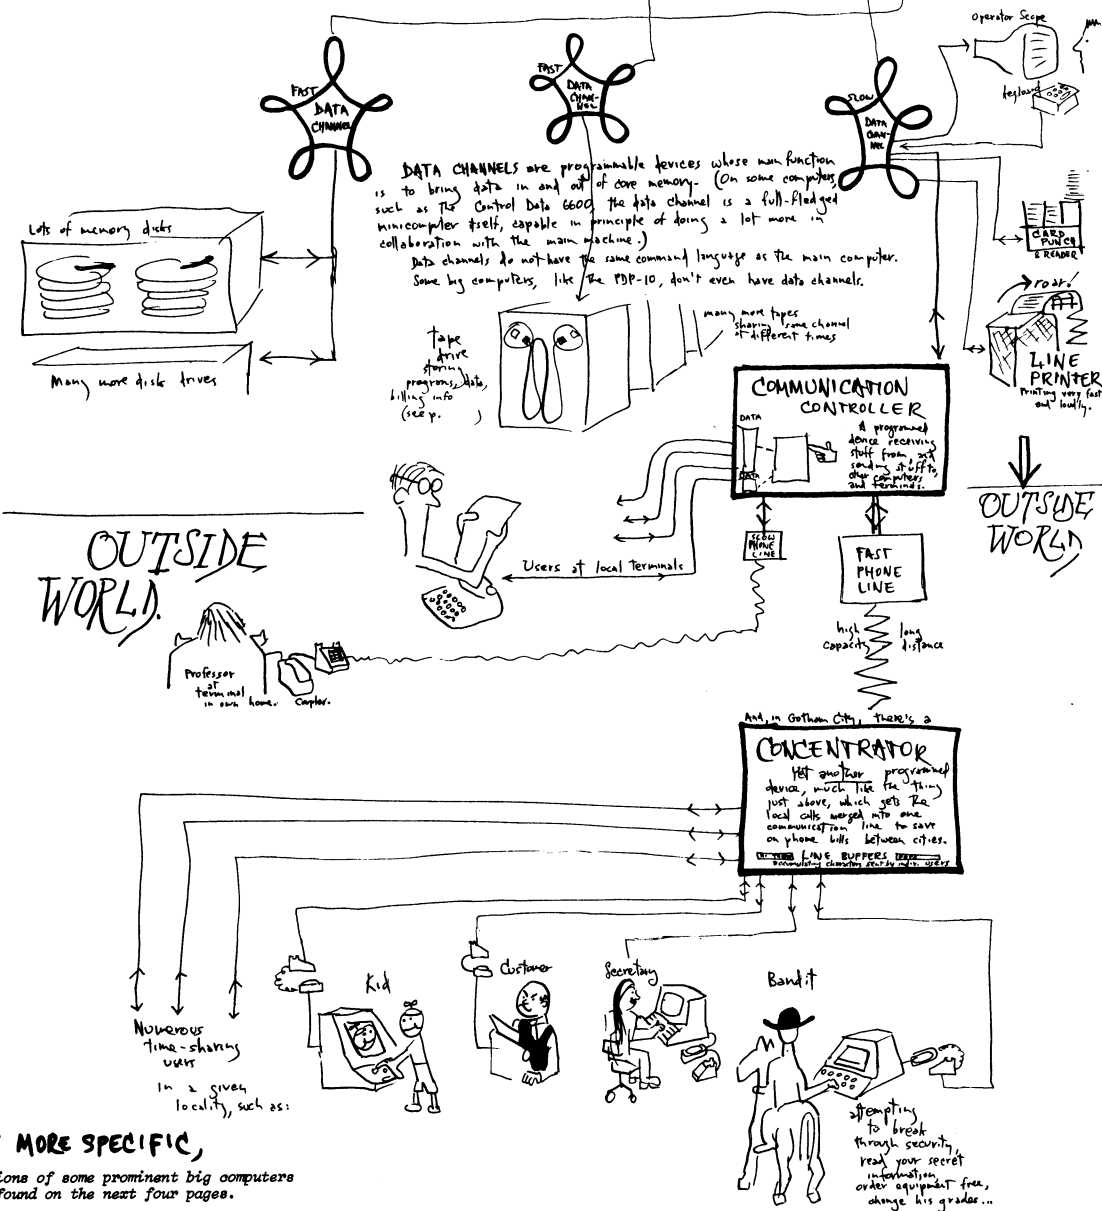 Operator Scope
keyboard
FAST
DATA
CHANNEL
FAST
DATA
CHAN-
NEL
SLOW
DATA
CHAN-
NEL
DATA CHANNELS are programmable devices whose main function
is to bring data in and out of core memory. (On some computers,
such as the Control Data 6600, the data channel is a full-fledged
minicomputer itself, capable in principle of doing a lot more in
collaboration with the main machine.)
Data channels do not have the same command language as the main computer.
Some big computers, like the PDP-10, don't even have data channels.
CARD
PUNCH
& READER
Lots of memory disks
Many more disk drives
tape
drive
storing
programs, data,
billing info
(see p. )
many more tapes
sharing same channel
at different times
roar!
LINE
PRINTER
Printing very fast
and loudly.
COMMUNICATION
CONTROLLER
DATA
DATA
A programmed
device receiving
stuff from, and
sending stuff to,
other computers
and terminals.
OUTSIDE
WORLD.
OUTSIDE
WORLD
SLOW
PHONE
LINE
FAST
PHONE
LINE
Users at local terminals
high
capacity
long
distance
Professor
at
terminal
in own home.
Coupler.
And, in Gotham City, there's a
CONCENTRATOR
Yet another programmed
device, much like the thing
just above, which gets the
local calls merged into one
communication line to save
on phone bills between cities.
LINE BUFFERS
accumulating characters sent by indiv. users
Kid
Customer
Secretary
Bandit
Numerous
time-sharing
users
in a given
locality, such as:
attempting
to break
through security,
read your secret
information,
order equipment free,
change his grades...
MORE SPECIFIC,
ions of some prominent big computers
found on the next four pages.